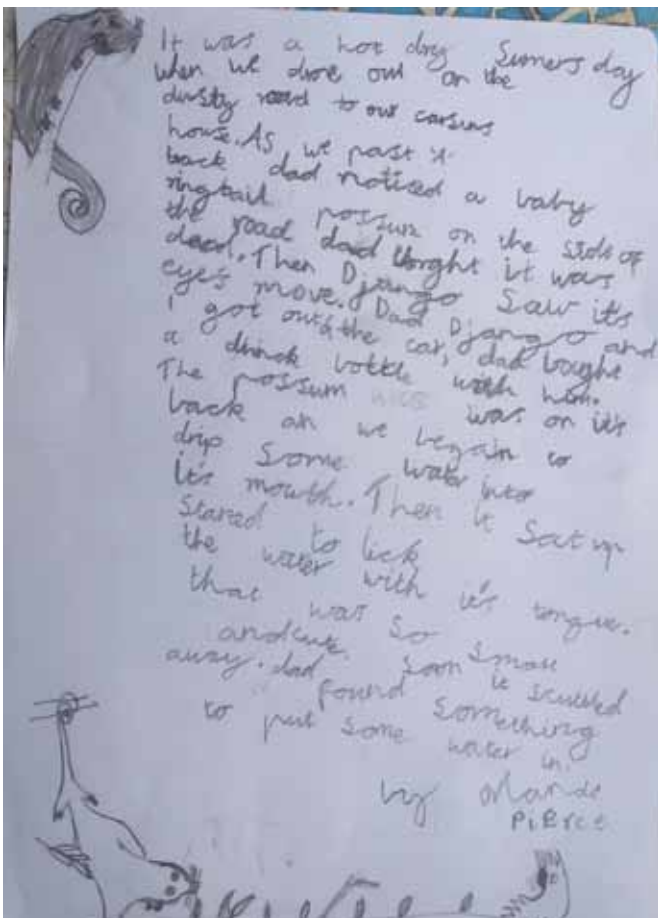 It was a hot dry Sumers day
when we drove out on the
dusty road to our carsins
house. As we past
back dad notised a baby
ringtail possum on the side of
the road dad thorght it was
dead. Then Django Saw its
eye's move. Dad Django and
I got out the car, dad bought
a drinck bottle with him.
The possum was on it's
back an we begain to
drip Some water into
it's mouth. Then it Sat up
Stared to lick
the water with it's tongue.
that was so small
and cute. Soon it scutled
away. dad found something
to put some water in.
by Orlando
PiErce